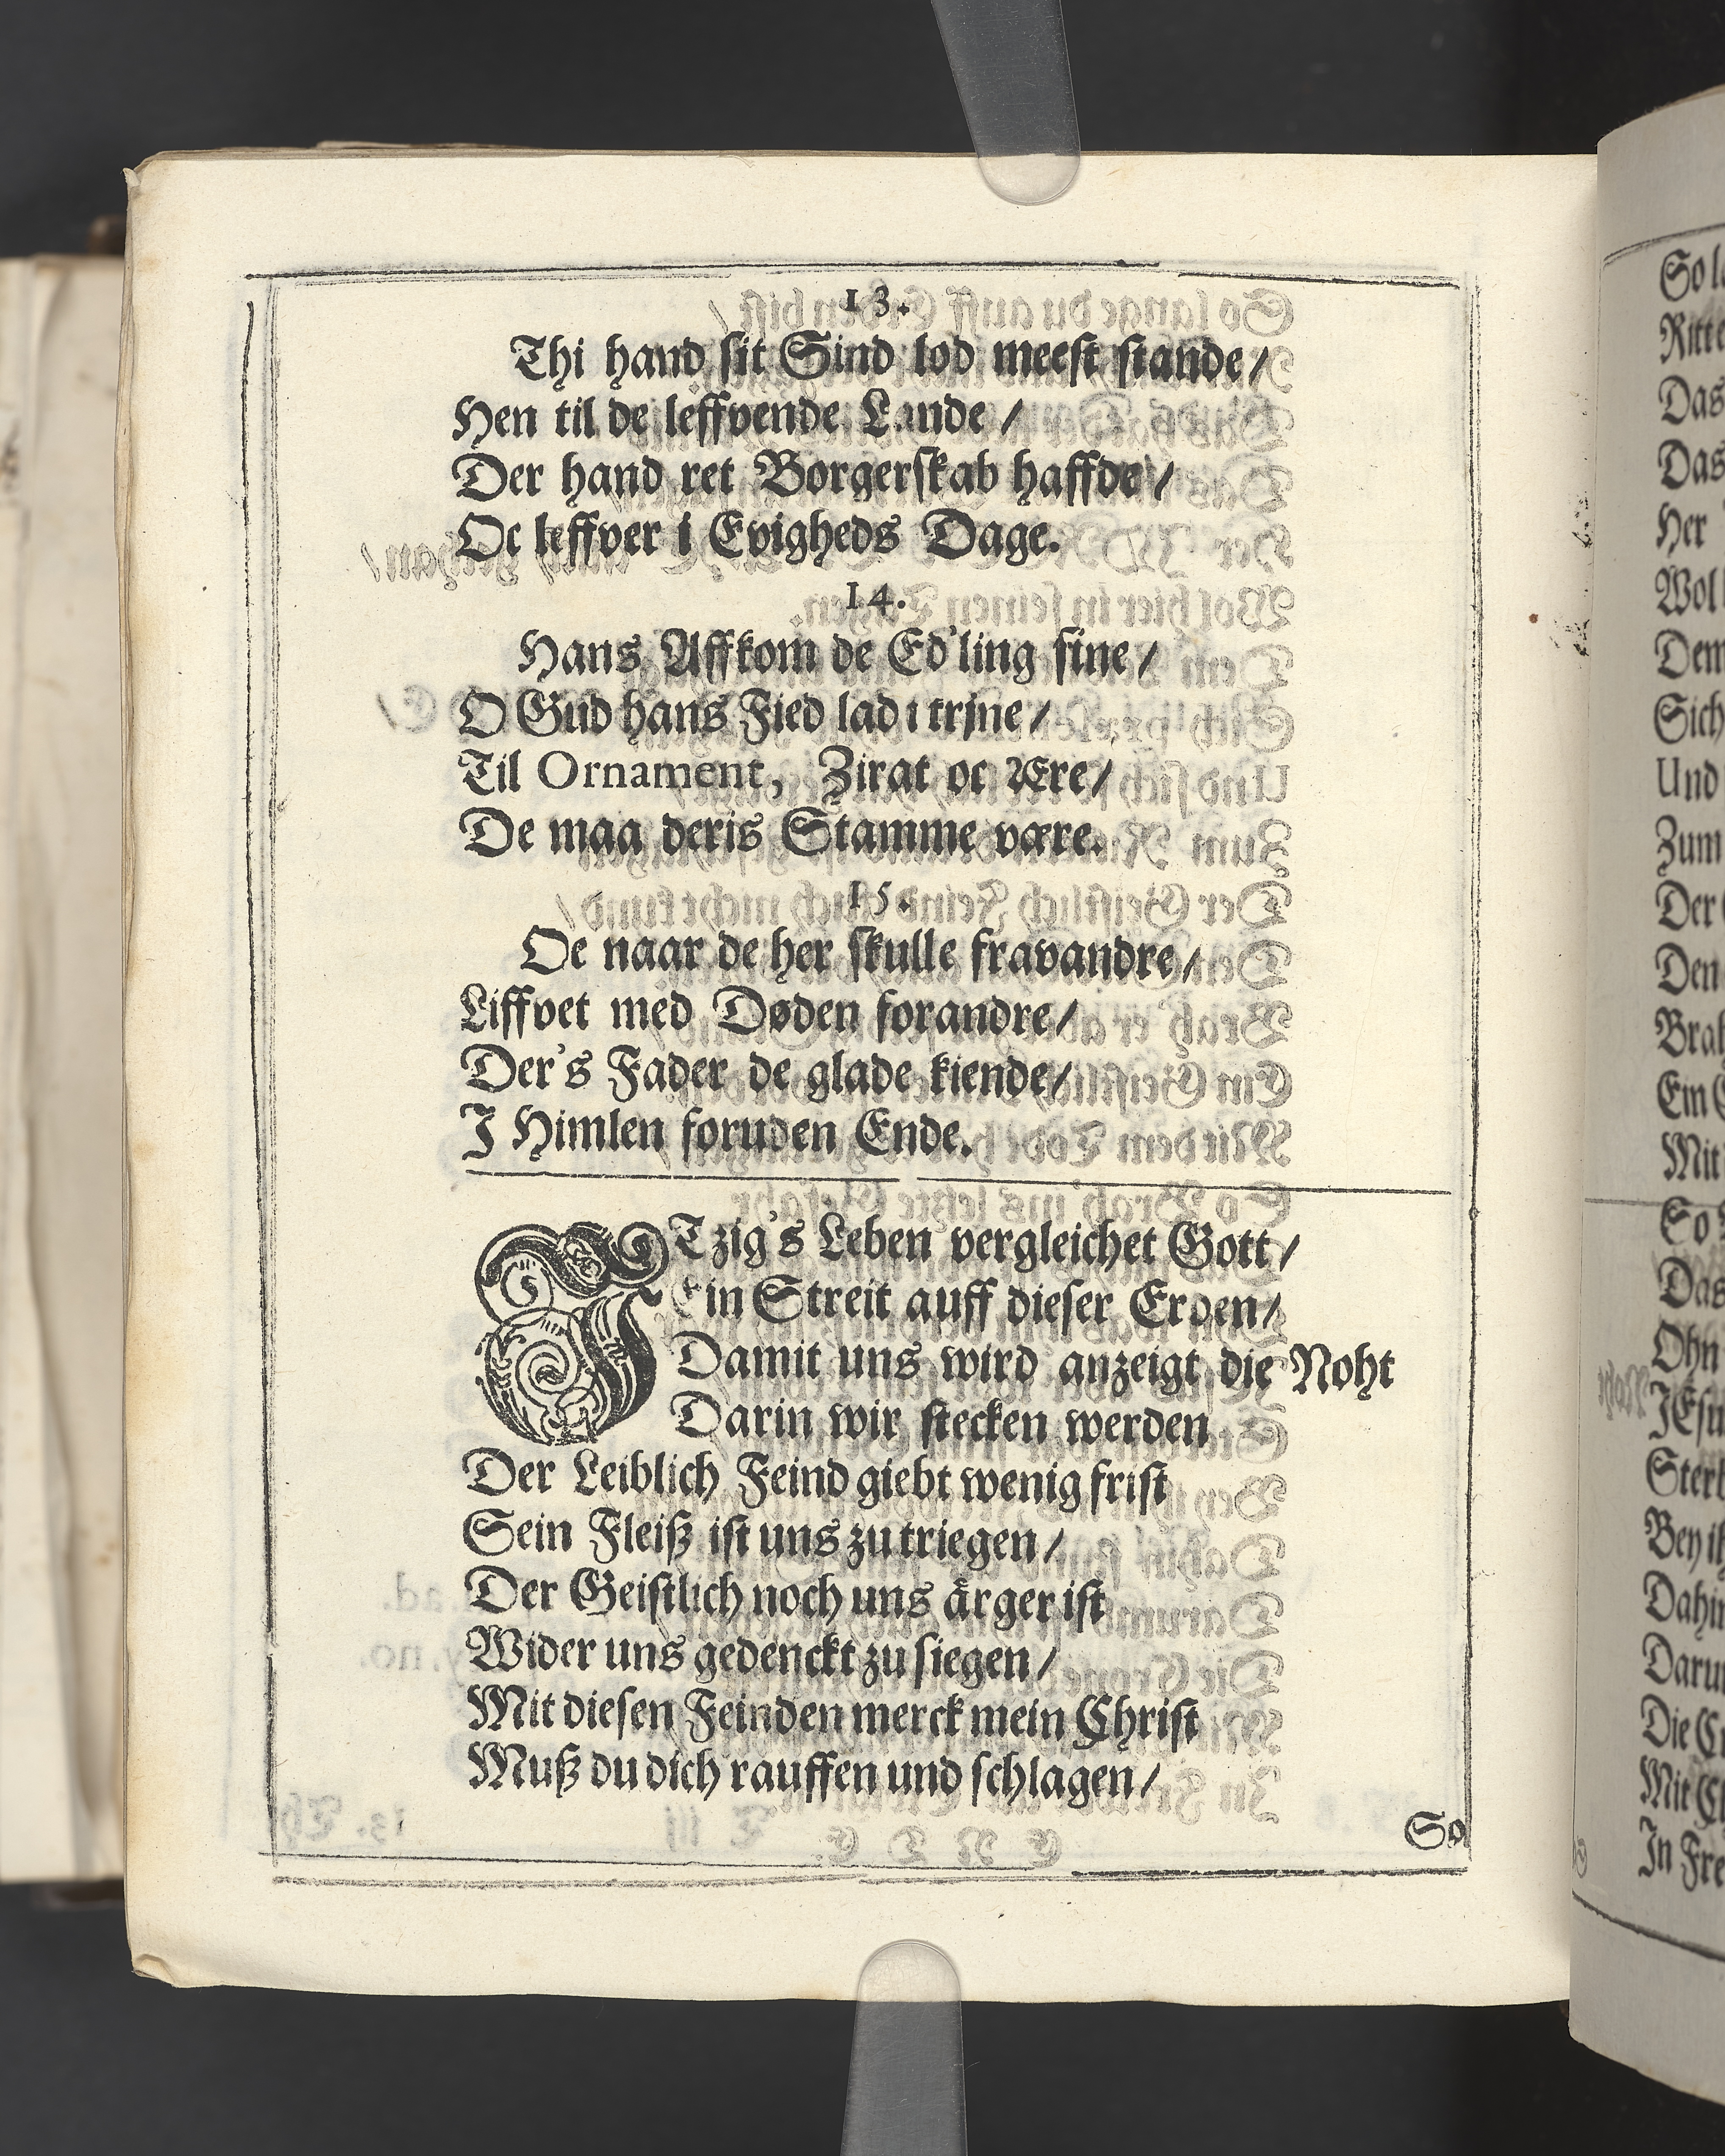 13.
Thi hand sit Sind lod meest stande/
Hen til de leffvende Lande/
Der hand ret Borgerskab haffde/
Oc leffver i Evigheds Dage.
14.
Hans Affkom de Ed'ling sine/
O Gud hans Fied lad i trjne/
Til Ornament, Zirat oc Ære/
De maa deris Stamme være.
15.
Oe naar de her skulle fravandre/
Liffvet med Døden forandre/
Der's Fader de glade kiende/
I Himlen foruden Ende.
JTzig's Leben vergleichet Gott/
Ein Streit auff dieser Erden/
Damit uns wird anzeigt die Noht
Darin wir stecken werden
Der Leiblich Feind giebt wenig frist
Sein Fleiß ist uns zu triegen/
Der Geistlich noch uns ärger ist
Wider uns gedenckt zu siegen/
Mit diesen Feinden merck mein Christ
Muß du dich rauffen und schlagen/
So
Ritte
Das
Das
Her
Wol
Dem
Sich
Und
Zum
Der
Den
Ein
Mit
So
Das
Ohn
Bey
Die
Mit
In Fre